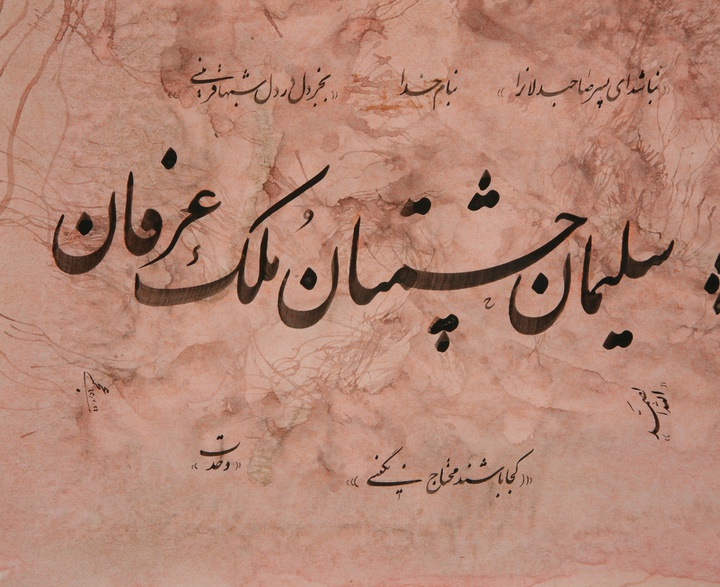 نباشد ای پسر صاحبدلانرا
بنام خدا
بجز دل در دل شبها قرینی
سلیمان حشمتان ملک عرفان
الله الصمد
کجا باشند محتاج نگینی
وحدت